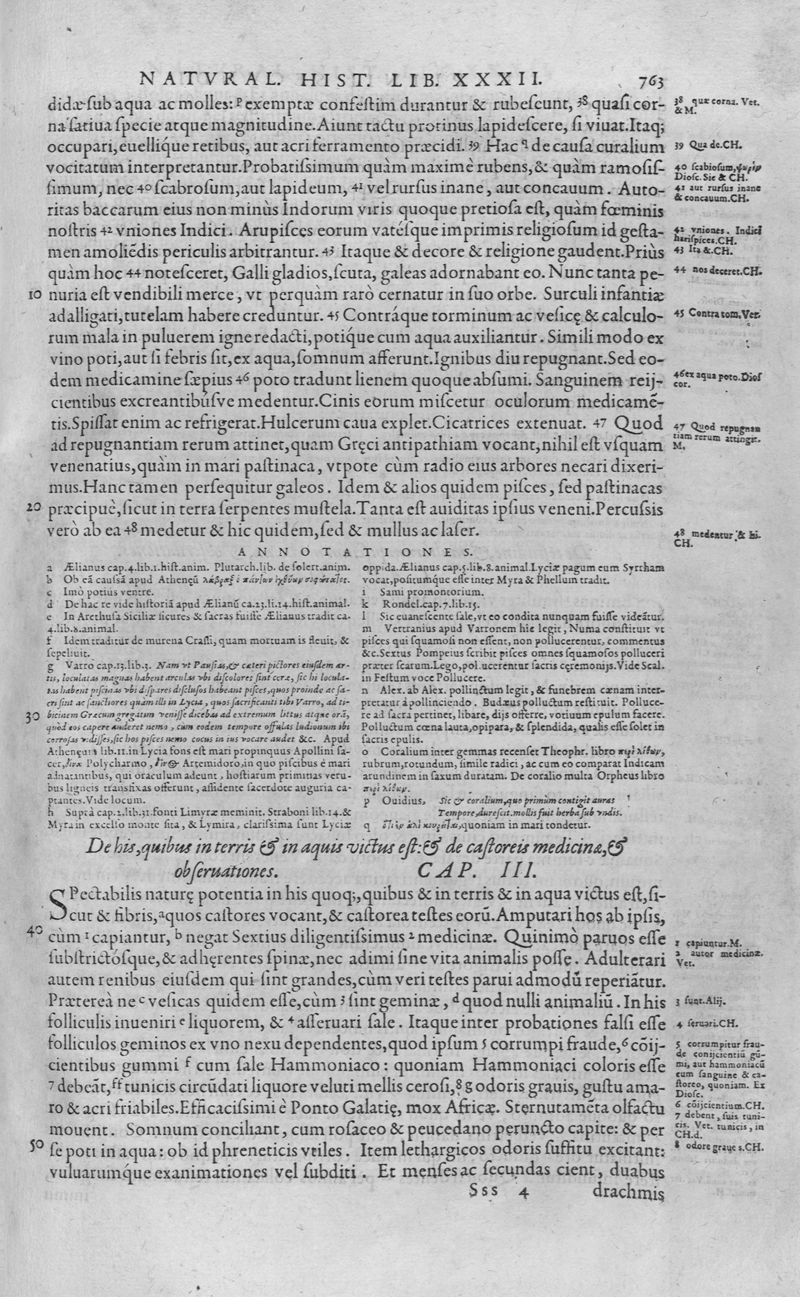 NATVRAL. HIST. LIB. XXXII. 763
didæ sub aqua ac molles: p exemptæ confestim durantur & rubescunt, 38 quasi cor-
na satiua specie atque magnitudine. Aiunt tactu protinus lapidescere, si viuat. Itaq;
occupari, euellíque retibus, aut acri ferramento præcidi. 39 Hac q de causa curalium
vocitatum interpretantur. Probatissimum quàm maximè rubens, & quàm ramosis-
simum, nec 40 scabrosum, aut lapideum, 41 vel rursus inane, aut concauum. Auto-
ritas baccarum eius non minùs Indorum viris quoque pretiosa est, quàm fœminis
nostris 42 vniones Indici. Aruspices eorum vatésque imprimis religiosum id gesta-
men amoliẽdis periculis arbitrantur. 43 Itaque & decore & religione gaudent. Priùs
quàm hoc 44 notesceret, Galli gladios, scuta, galeas adornabant eo. Nunc tanta pe-
10 nuria est vendibili merce, vt perquàm rarò cernatur in suo orbe. Surculi infantiæ
adalligati, tutelam habere creduntur. 45 Contráque torminum ac vesicę & calculo-
rum mala in puluerem igne redacti, potíque cum aqua auxiliantur. Simili modo ex
vino poti, aut si febris sit, ex aqua, somnum afferunt. Ignibus diu repugnant. Sed eo-
dem medicamine sæpius 46 poto tradunt lienem quoque absumi. Sanguinem reij-
cientibus excreantibúsve medentur. Cinis eorum miscetur oculorum medicamẽ-
tis. Spissat enim ac refrigerat. Hulcerum caua explet. Cicatrices extenuat. 47 Quod
ad repugnantiam rerum attinet, quam Gręci antipathiam vocant, nihil est vsquam
venenatius, quàm in mari pastinaca, vtpote cùm radio eius arbores necari dixeri-
mus. Hanc tamen persequitur galeos. Idem & alios quidem pisces, sed pastinacas
20 præcipuè, sicut in terra serpentes mustela. Tanta est auiditas ipsius veneni. Percussis
verò ab ea 48 medetur & hic quidem, sed & mullus ac laser.
38 quæ corna. Vet.
& M.
39 Qua de. CH.
40 scabiosum,
Diosc. Sic & CH.
41 aut rursus inane
& concauum. CH.
42 vniones. Indici
harispices. CH.
43 Ita &. CH.
44 nosceret. CH.
45 Contra tom. Vet.
46 ex aqua poto. Dios
cor.
47 Quod repugnan
tiam rerum attingit.
M.
48 medentur & hi.
CH.
ANNOTATIONES.
a Ælianus cap. 4. lib. 1. hist. anim. Plutarch. lib. de solert. anim.
b Ob eã causã apud Athenęũ
c Imò potiùs ventre.
d De hac re vide historiã apud Ælianũ ca. 23. li. 14. hist. animal.
e In Arethusa Siciliæ sicures & sacras fuisse Ælianus tradit ca.
4. lib. 8. animal.
f Idem traditur de murena Crassi, quam mortuam is fleuit, &
sepeliuit.
g Varro cap. 13. lib. 3. Nam vt Pausias, & cæteri pictores eiusdem ge-
ris, loculatas magnas habent arculas vbi discolores sint ceræ, sic hi locula-
tas habent piscinas vbi dispares disclusos habeant pisces, quos proinde ac sa-
cri sint ac sanctiores quàm illi in Lycia, quos sacrificanti tibi Varro, ad ti-
30 bicinem Græcum gregatim venisse dicebas ad extremum littus atque arã,
quòd eos capere auderet nemo, cùm eodem tempore
&c. Apud
Athenęum lib. 11. in Lycia fons est mari propinquus Apollini sa-
cer, Polycharmo, Artemidoro, in quo piscibus è mari
adnatantibus, qui oraculum adeunt, hostiarum primitias veru-
bus ligneis transfixas offerunt, assidente sacerdote auguria ca-
ptantes. Vide locum.
h Suprà cap. 2. lib. 31. fonti Limyræ meminit. Straboni lib. 14. &
Myra in excelso monte sita, & Lymira, clarissima sunt Lyciæ
oppida. Ælianus cap. 5. lib. 8. animal. Lyciæ pagum eum Syrrham
vocat, positúmque esse inter Myra & Phellum tradit.
i Sami promontorium.
k Rondel. cap. 7. lib. 15.
l Sic euanescente sale, vt eo condita nunquam fuisse videãtur.
m Vertranius apud Varronem hîc legit, Numa constituit vt
pisces qui squamosi non essent, non pollucerentur, commentus
&c. Sextus Pompeius scribit pisces omnes squamosos polluceri
præter scarum. Lego, pollucerentur sacris cęremonijs. Vide Scal.
in Festum voce Pollucere.
n Alex. ab Alex. pollinctum legit, & funebrem cœnam inter-
pretatur à pollinciendo. Budæus polluctum restituit. Polluce-
re ad sacra pertinet, libare, dijs offerre, votiuum epulum facere.
Polluctum cœna lauta, opipara, & splendida, qualis esse solet in
sacris epulis.
o Coralium inter gemmas recenset Theophr. libro περὶ λίθων,
rubrum, rotundum, simile radici, ac cum eo comparat Indicam
arundinem in saxum duratam. De coralio multa Orpheus libro
περὶ λίθων.
p Ouidius, Sic & coralium, quo primùm contigit auras
Tempore, durescit. mollis fuit herba sub vndis.
q quoniam in mari tondetur.
De his, quibus in terris & in aquis victus est: & de castoreis medicina, &
obseruationes. CAP. III.
SPectabilis naturę potentia in his quoq;, quibus & in terris & in aqua victus est, si-
cut & fibris, a quos castores vocant, & castorea testes eorũ. Amputari hos ab ipsis,
40 cùm 1 capiantur, b negat Sextius diligentissimus 2 medicinæ. Quinimò paruos esse
substrictósque, & adhęrentes spinæ, nec adimi sine vita animalis posse. Adulterari
autem renibus eiusdem qui sint grandes, cùm veri testes parui admodũ reperiãtur.
Præterea ne c vesicas quidem esse, cùm 3 sint geminæ, d quod nulli animaliũ. In his
folliculis inueniri e liquorem, & 4 asseruari sale. Itaque inter probationes falsi esse
folliculos geminos ex vno nexu dependentes, quod ipsum 5 corrumpi fraude, 6 cõij-
cientibus gummi f cum sale Hammoniaco: quoniam Hammoniaci coloris esse
7 debeãt, ff tunicis circũdati liquore veluti mellis cerosi, 8 g odoris grauis, gustu ama-
ro & acri friabiles. Efficacissimi è Ponto Galatię, mox Africæ. Stęrnutamẽta olfactu
mouent. Somnum conciliant, cum rosaceo & peucedano peruncto capite: & per
50 se poti in aqua: ob id phreneticis vtiles. Item lethargicos odoris suffitu excitant:
vuluarumque exanimationes vel subditi. Et menses ac secundas cient, duabus
Sss 4 drachmis
1 capiuntur. M.
2 autor medicinæ.
Vet.
3 sunt. Alij.
4 seruari. CH.
5 corrumpitur frau-
de conijcientiũ gũ-
mi, aut hammoniacũ
cum sanguine & ca-
storeo, quoniam. Ex
Diosc.
6 cõijcientium. CH.
7 debent, suis tuni-
cis. Vet. tunicis, in
CH. d.
8 odore graues. CH.